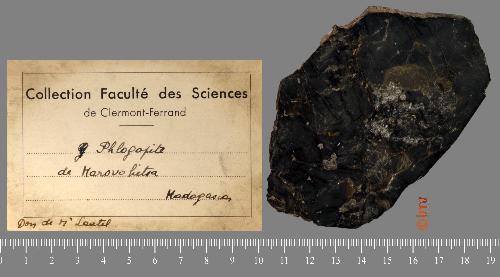 Collection Faculté des Sciences
de Clermont-Ferrand
Phlogopite
de Marovohitra
Madagascar
Don de Mr
0 1 2 3 4 5 6 7 8 9 10 11 12 13 14 15 16 17 18 19